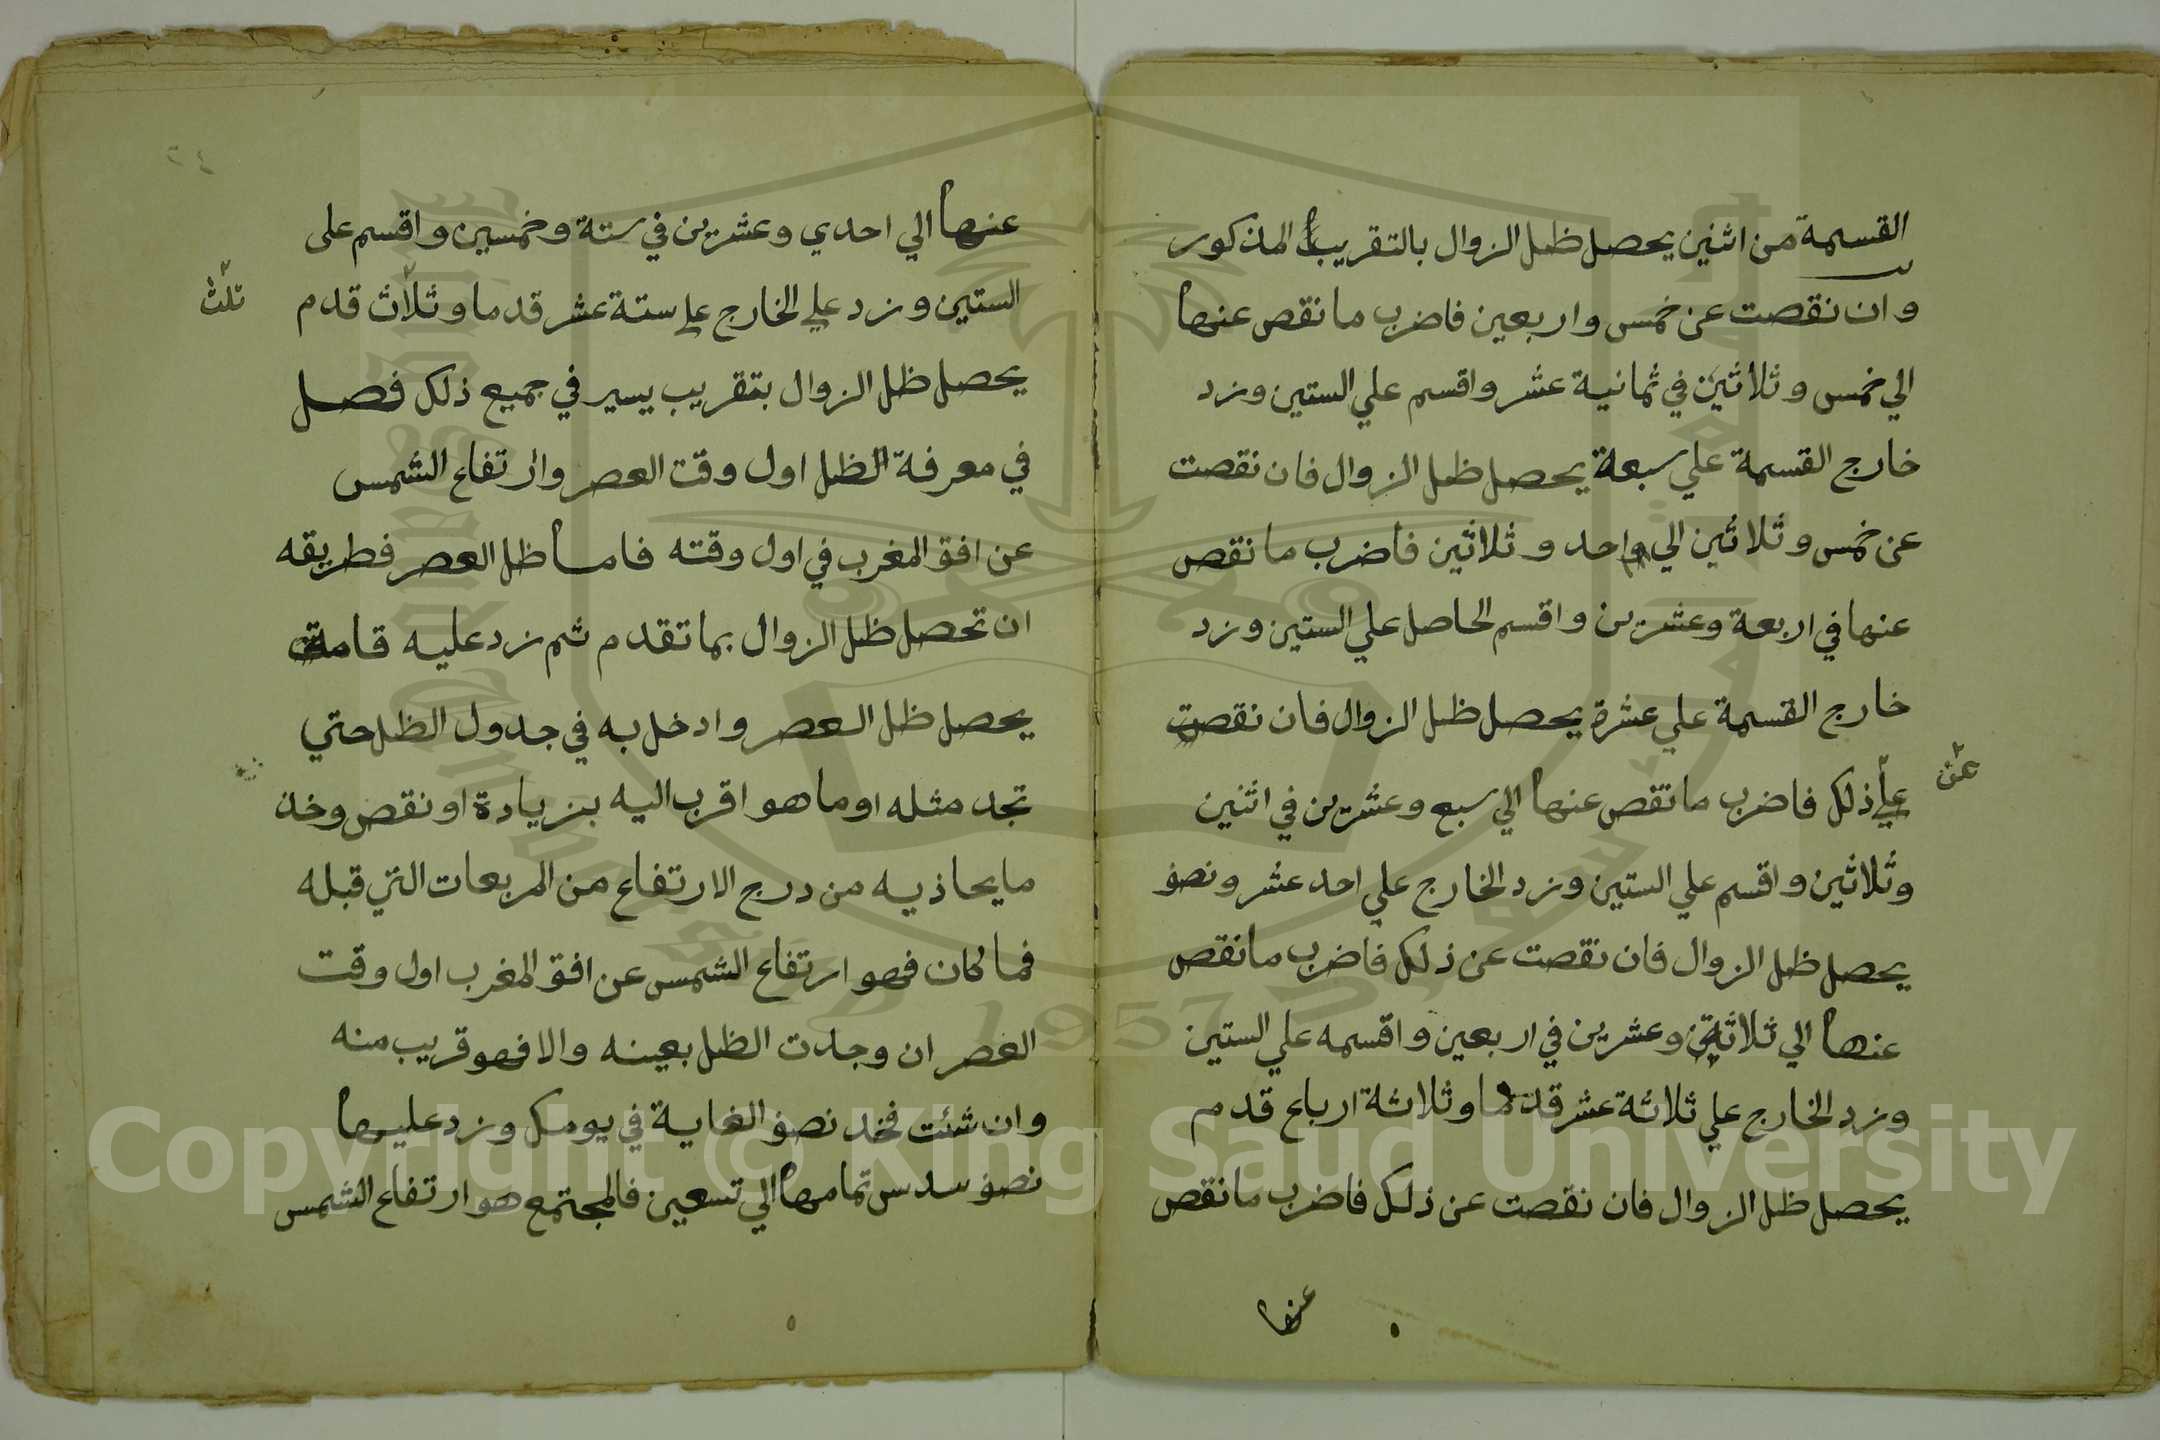 القسمة من اثنين يحصل ظل الزوال بالتقريب المذكور
وان نقصت عن خمس واربعين فاضرب ما نقص عنها
الي خمس وثلاثين في ثمانية عشر واقسم علي الستين وزد
خارج القسمة علي سبعة يحصل ظل الزوال فان نقصت
عن خمس وثلاثين الي واحد وثلاثين فاضرب ما نقص
عنها في اربعة وعشرين واقسم الحاصل علي الستين وزد
خارج القسمة علي عشرة يحصل ظل الزوال فان نقصت
علي ذلك فاضرب ما نقص عنها الي سبع وعشرين في اثنين
عن
وثلاثين واقسم علي الستين وزد الخارج علي احد عشر ونصف
يحصل ظل الزوال فان نقصت عن ذلك فاضرب ما نقص
عنها الي ثلاثة وعشرين في اربعين واقسمه علي الستين
وزد الخارج علي ثلاثة عشر قدما وثلاثة ارباع قدم
يحصل ظل الزوال فان نقصت عن ذلك فاضرب ما نقص
عنها
عنها الي احدي وعشرين في ستة وخمسين واقسم على
الستين وزد علي الخارج علي ستة عشر قدما وثلاث قدم
ثلث
يحصل ظل الزوال بتقريب يسير في جميع ذلك فصل
في معرفة الظل اول وقت العصر وارتفاع الشمس
عن افق المغرب في اول وقته فاما ظل العصر فطريقه
ان تحصل ظل الزوال بما تقدم ثم زد عليه قامة
يحصل ظل العصر وادخل به في جدول الظل حتي
تجد مثله او ما هو اقرب اليه بزيادة او نقص وخذ
ما يحاذيه من درج الارتفاع من المربعات التي قبله
فما كان فهو ارتفاع الشمس عن افق المغرب اول وقت
العصر ان وجدت الظل بعينه والا فهو قريب منه
وان شئت فخذ نصف الغاية في يومك وزد عليها
نصف سدس تمامها الي تسعين فالمجتمع هو ارتفاع الشمس
Copyright © King Saud University
1957